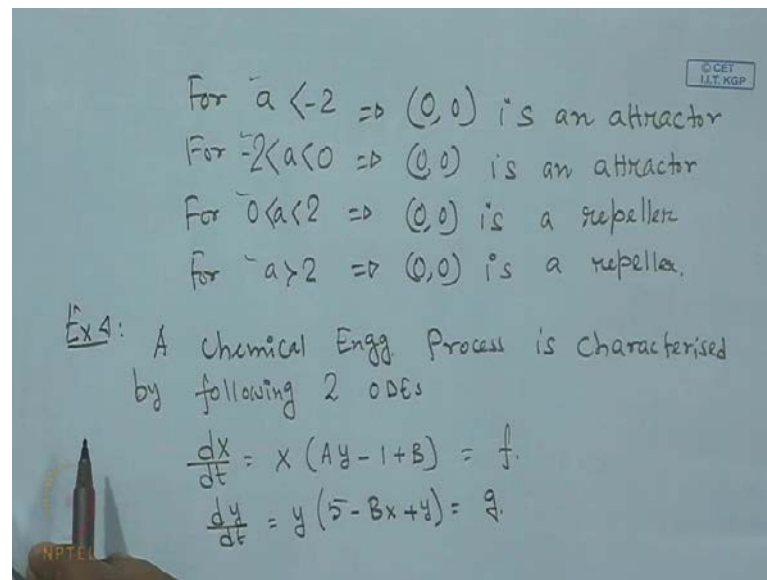 © CET
I.I.T. KGP
For a < -2 => (0,0) is an attractor
For -2<a<0 => (0,0) is an attractor
For 0<a<2 => (0,0) is a repeller
for a>2 => (0,0) is a repeller.
Ex 4: A Chemical Engg. Process is characterised
by following 2 ODEs
dx/dt = x (Ay - 1 + B) = f.
dy/dt = y (5 - Bx + y) = g.
NPTEL